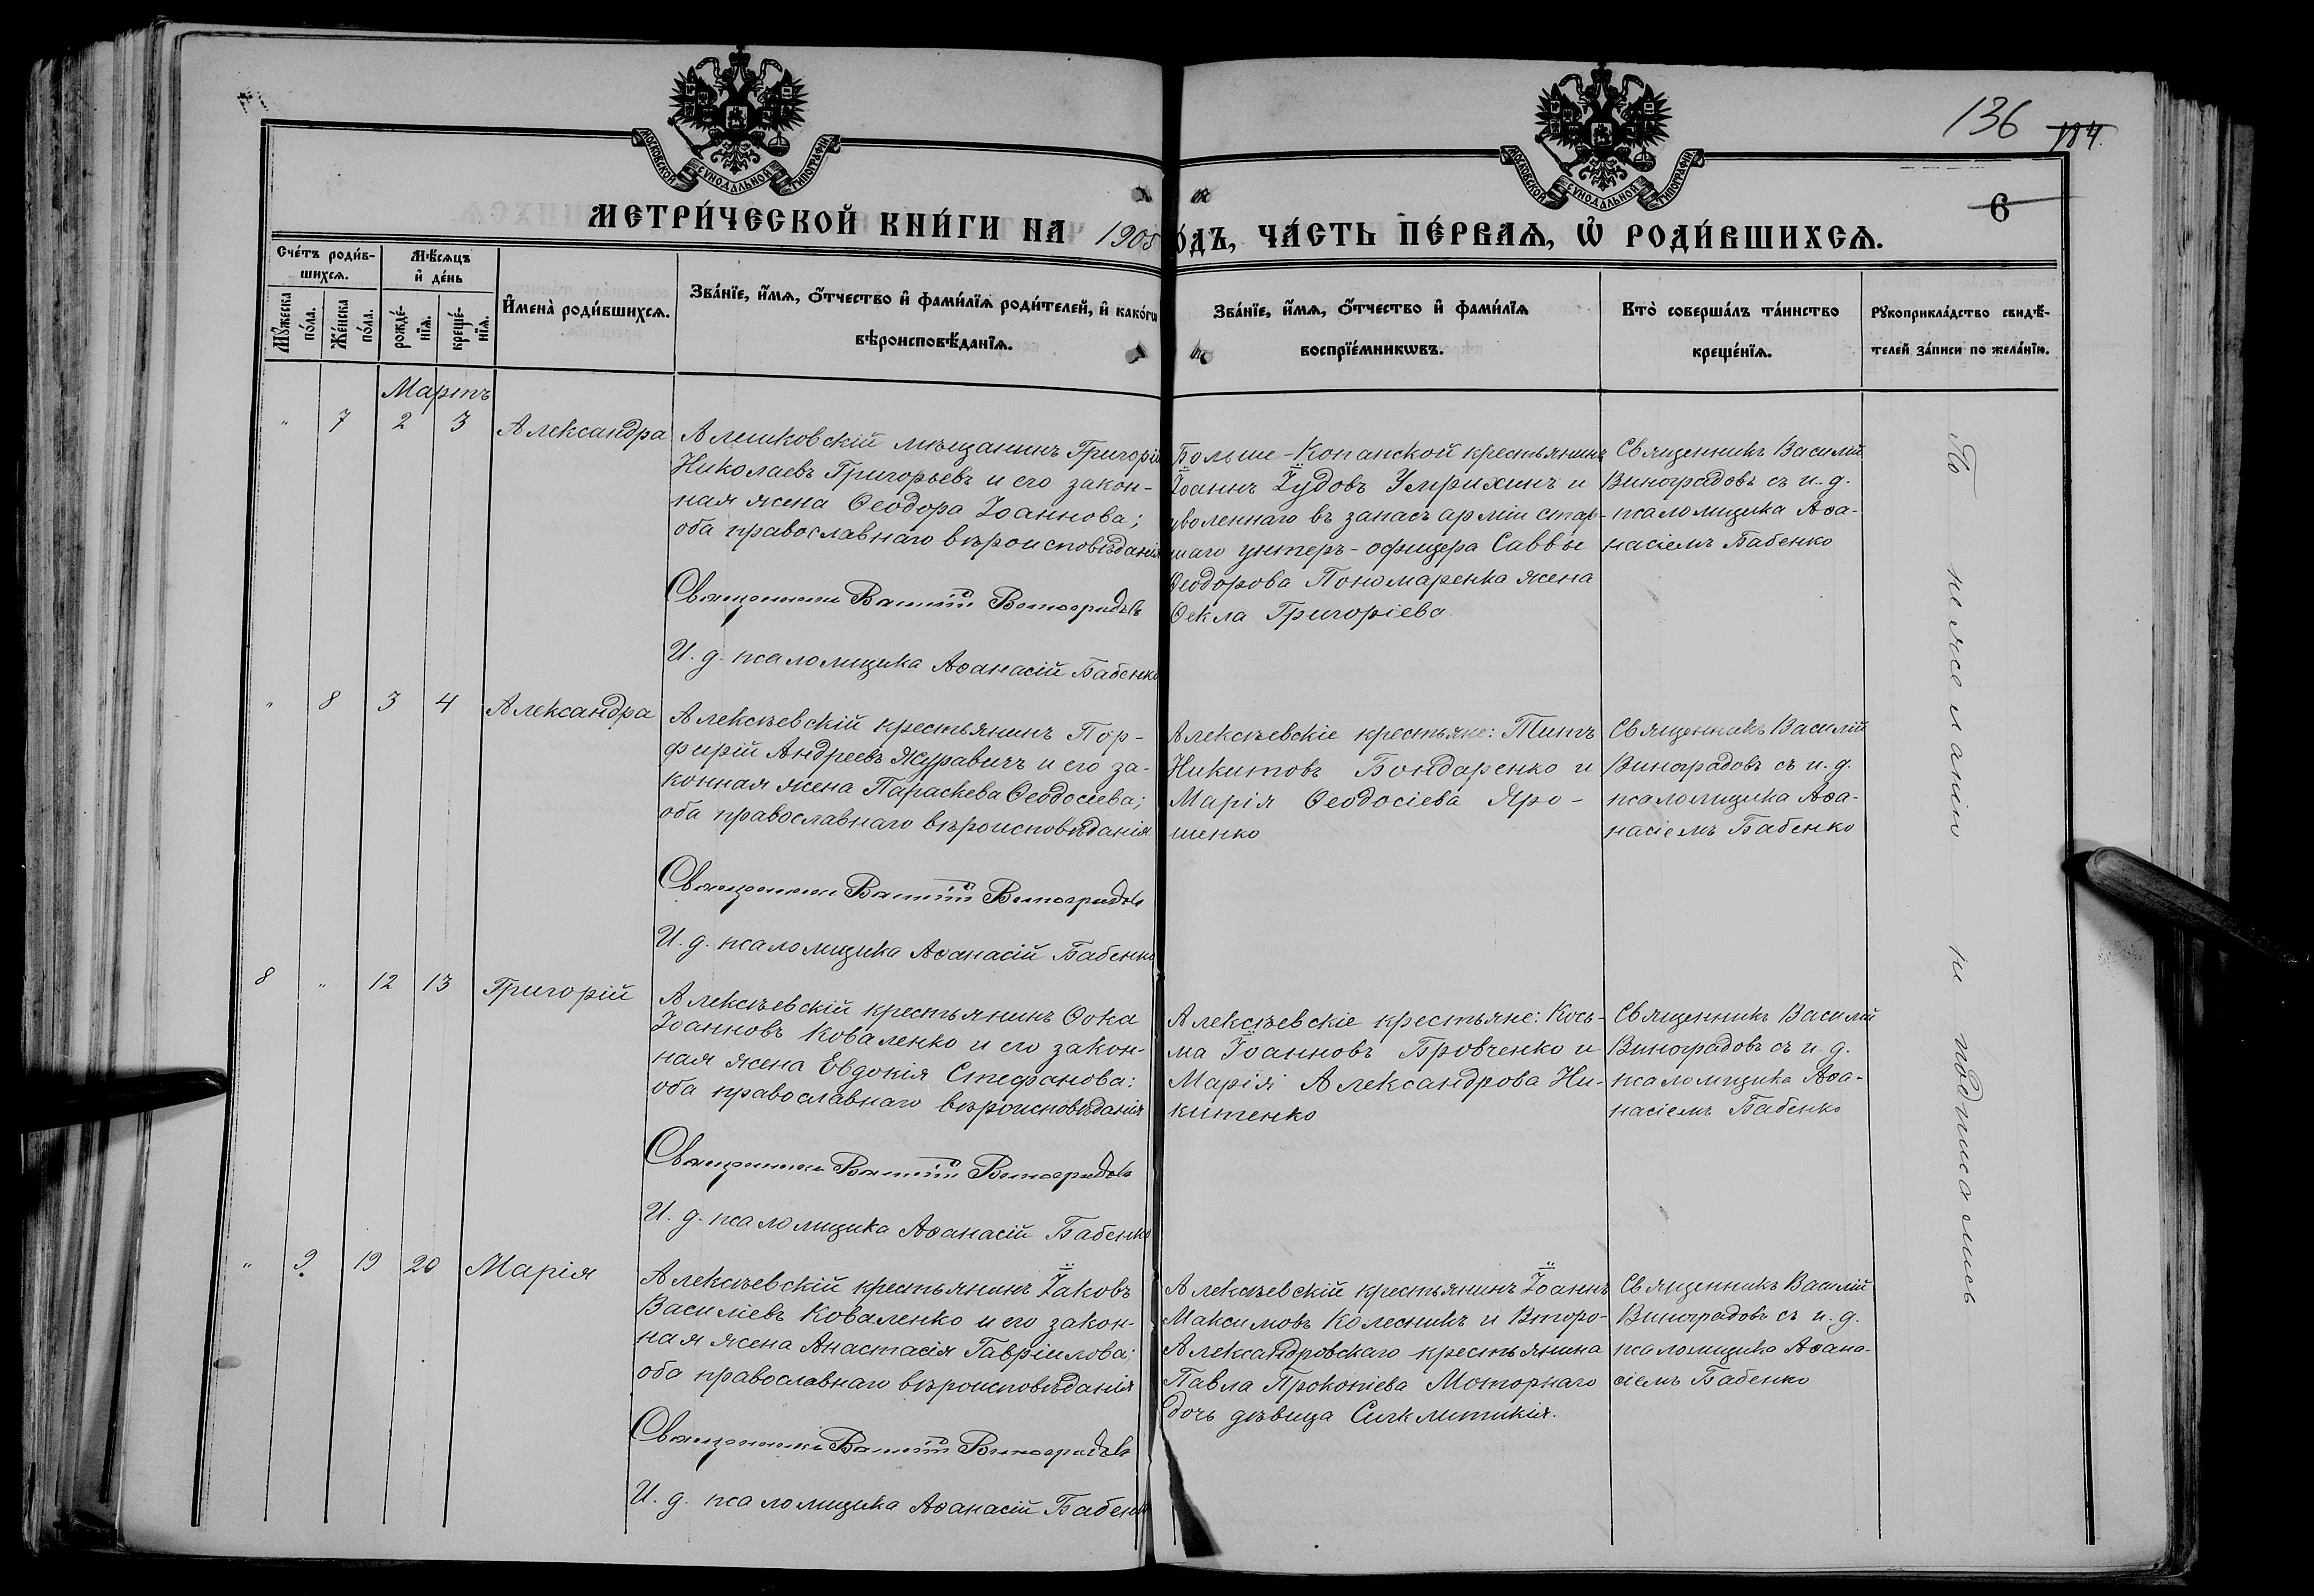 136 184.
МОСКОВСКОЙ СУНОДАЛЬНОЙ ТИПОГРАФІИ
МОСКОВСКОЙ СУНОДАЛЬНОЙ ТИПОГРАФІИ
6
МЕТРИ́ЧЕСКОЙ КНИ́ГИ НА 1905
О́ДЪ, ЧА́СТЬ ПЕ́РВАѦ, Ѡ҆ РОДИ́ВШИХСѦ.
Сче́тъ роди́в-
шихсѧ.
Мꙋ́жеска
по́ла.
Же́нска
по́ла.
Мѣ́сѧцъ
и҆ де́нь
рожде́-
нїѧ.
креще́-
нїѧ.
И҆мена̀ роди́вшихсѧ.
Зва́нїе, и҆́мѧ, ѻ҆́тчество и҆ фами́лїѧ роди́телей, и҆ како́гѡ
вѣроисповѣ́данїѧ.
Зва́нїе, и҆́мѧ, ѻ҆́тчество и҆ фами́лїѧ
воспрїе́мникѡвъ.
Кто̀ соверша́лъ та́инство
креще́нїѧ.
Рꙋкоприкла́дство свидѣ́-
телей за́писи по жела́нїю.
Мартъ
" 7 2 3 Александра
Алешковскій мѣщанинъ Григорій
Николаевъ Григорьевъ и его закон-
ная жена Ѳеодора Іоаннова;
оба православнаго вѣроисповѣданія
Священникъ Василій Виноградовъ
И. д. псаломщика Аѳанасій Бабенко
Больше-Копанской крестьянинъ
Іоаннъ Іудовъ Умрихинъ и
уволеннаго въ запасъ арміи стар-
шаго унтеръ-офицера Саввы
Ѳеодорова Пономаренка жена
Ѳекла Григоріева.
Священникъ Василій
Виноградовъ съ и. д.
псаломщика Аѳа-
насіемъ Бабенко
По нежеланію не подписались
" 8 3 4 Александра
Алексѣевскій крестьянинъ Пор-
фирій Андреевъ Журавичъ и его за-
конная жена Параскева Ѳеодосіева;
оба православнаго вѣроисповѣданія
Священникъ Василій Виноградовъ
И. д. псаломщика Аѳанасій Бабенко
Алексѣевскіе крестьяне: Титъ
Никитовъ Бондаренко и
Марія Ѳеодосіева Яро-
шенко
Священникъ Василій
Виноградовъ съ и. д.
псаломщика Аѳа-
насіемъ Бабенко
8 " 12 13 Григорій
Алексѣевскій крестьянинъ Ѳока
Іоанновъ Коваленко и его закон-
ная жена Евдокія Стефанова:
оба православнаго вѣроисповѣданія
Священникъ Василій Виноградовъ
И. д. псаломщика Аѳанасій Бабенко
Алексѣевскіе крестьяне: Кось-
ма Іоанновъ Бровченко и
Марія Александрова Ни-
китенко
Священникъ Василій
Виноградовъ съ и. д.
псаломщика Аѳа-
насіемъ Бабенко
" 9. 19 20 Марія
Алексѣевскій крестьянинъ Іаковъ
Василіевъ Коваленко и его закон-
ная жена Анастасія Гавріилова;
оба православнаго вѣроисповѣданія
Священникъ Василій Виноградовъ
И. д. псаломщика Аѳанасій Бабенко
Алексѣевскій крестьянинъ Іоаннъ
Максимовъ Колесникъ и Второ-
Александровскаго крестьянина
Павла Прокопіева Моторнаго
дочь дѣвица Сигклитикія.
Священникъ Василій
Виноградовъ съ и. д.
псаломщика Аѳана-
сіемъ Бабенко